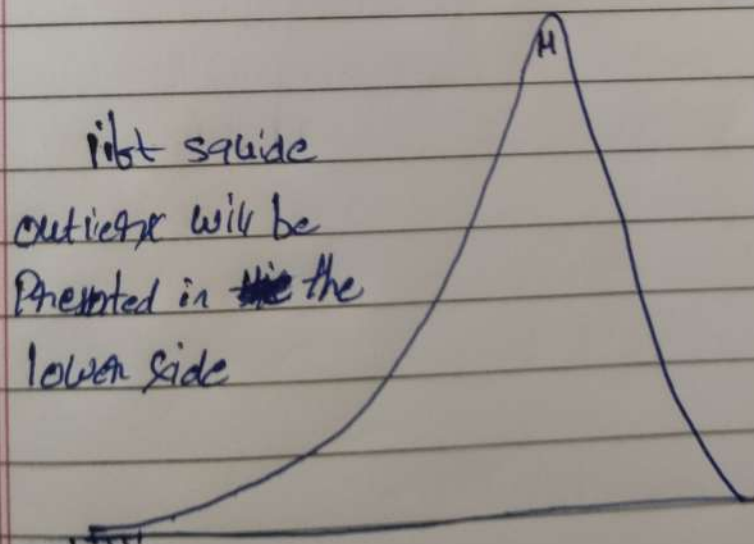 M
lift squide
outliers will be
Presented in the
lower side